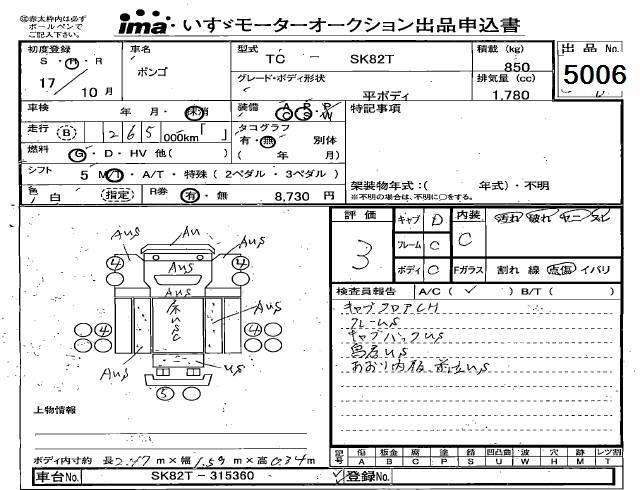 ㊟赤太枠内は必ず
ボールペンで
ご記入下さい。
ima いすゞモーターオークション出品申込書
初度登録 車名 型式 TC － SK82T 積載 (kg) 出品 No.
S・H・R ボンゴ 850
17 / 10 月 グレード・ボディ形状 排気量 (cc) 5006
平ボディ 1,780
車検 年 月・抹消 装備 A P P 特記事項
C S W
走行 (B) 265,000km「 」 タコグラフ
有・無 別体
燃料 G・D・HV 他( ) ( 年 月)
シフト 5 M/T・A/T・特殊 (2ペダル・3ペダル)
架装物年式:( 年式)・不明
※不明の場合は、不明に○をする。
色 白 (指定) R券 有・無 8,730 円
評価 キャブ D 内装 汚れ 破れ ヤニ スレ
3 フレーム C C
ボディ C Fガラス 割れ 線 点傷 イバリ
検査員報告 A/C ( ✓ ) B/T ( )
キャブフロアCH
フレームUS
キャブバックUS
鳥居US
あおり内板 US
AUS AU AUS
4 AUS 4
A/C
床USC AUS
4 4
AUS US
5
上物情報
ボディ内寸約 長 2.47 m × 幅 1.59 m × 高 0.34 m
記号 傷 板金 腐 塗 錆 凹凸曲 波 穴 跡 レツ割
A B C P S U W H M T
車台No. SK82T－315360 登録No.